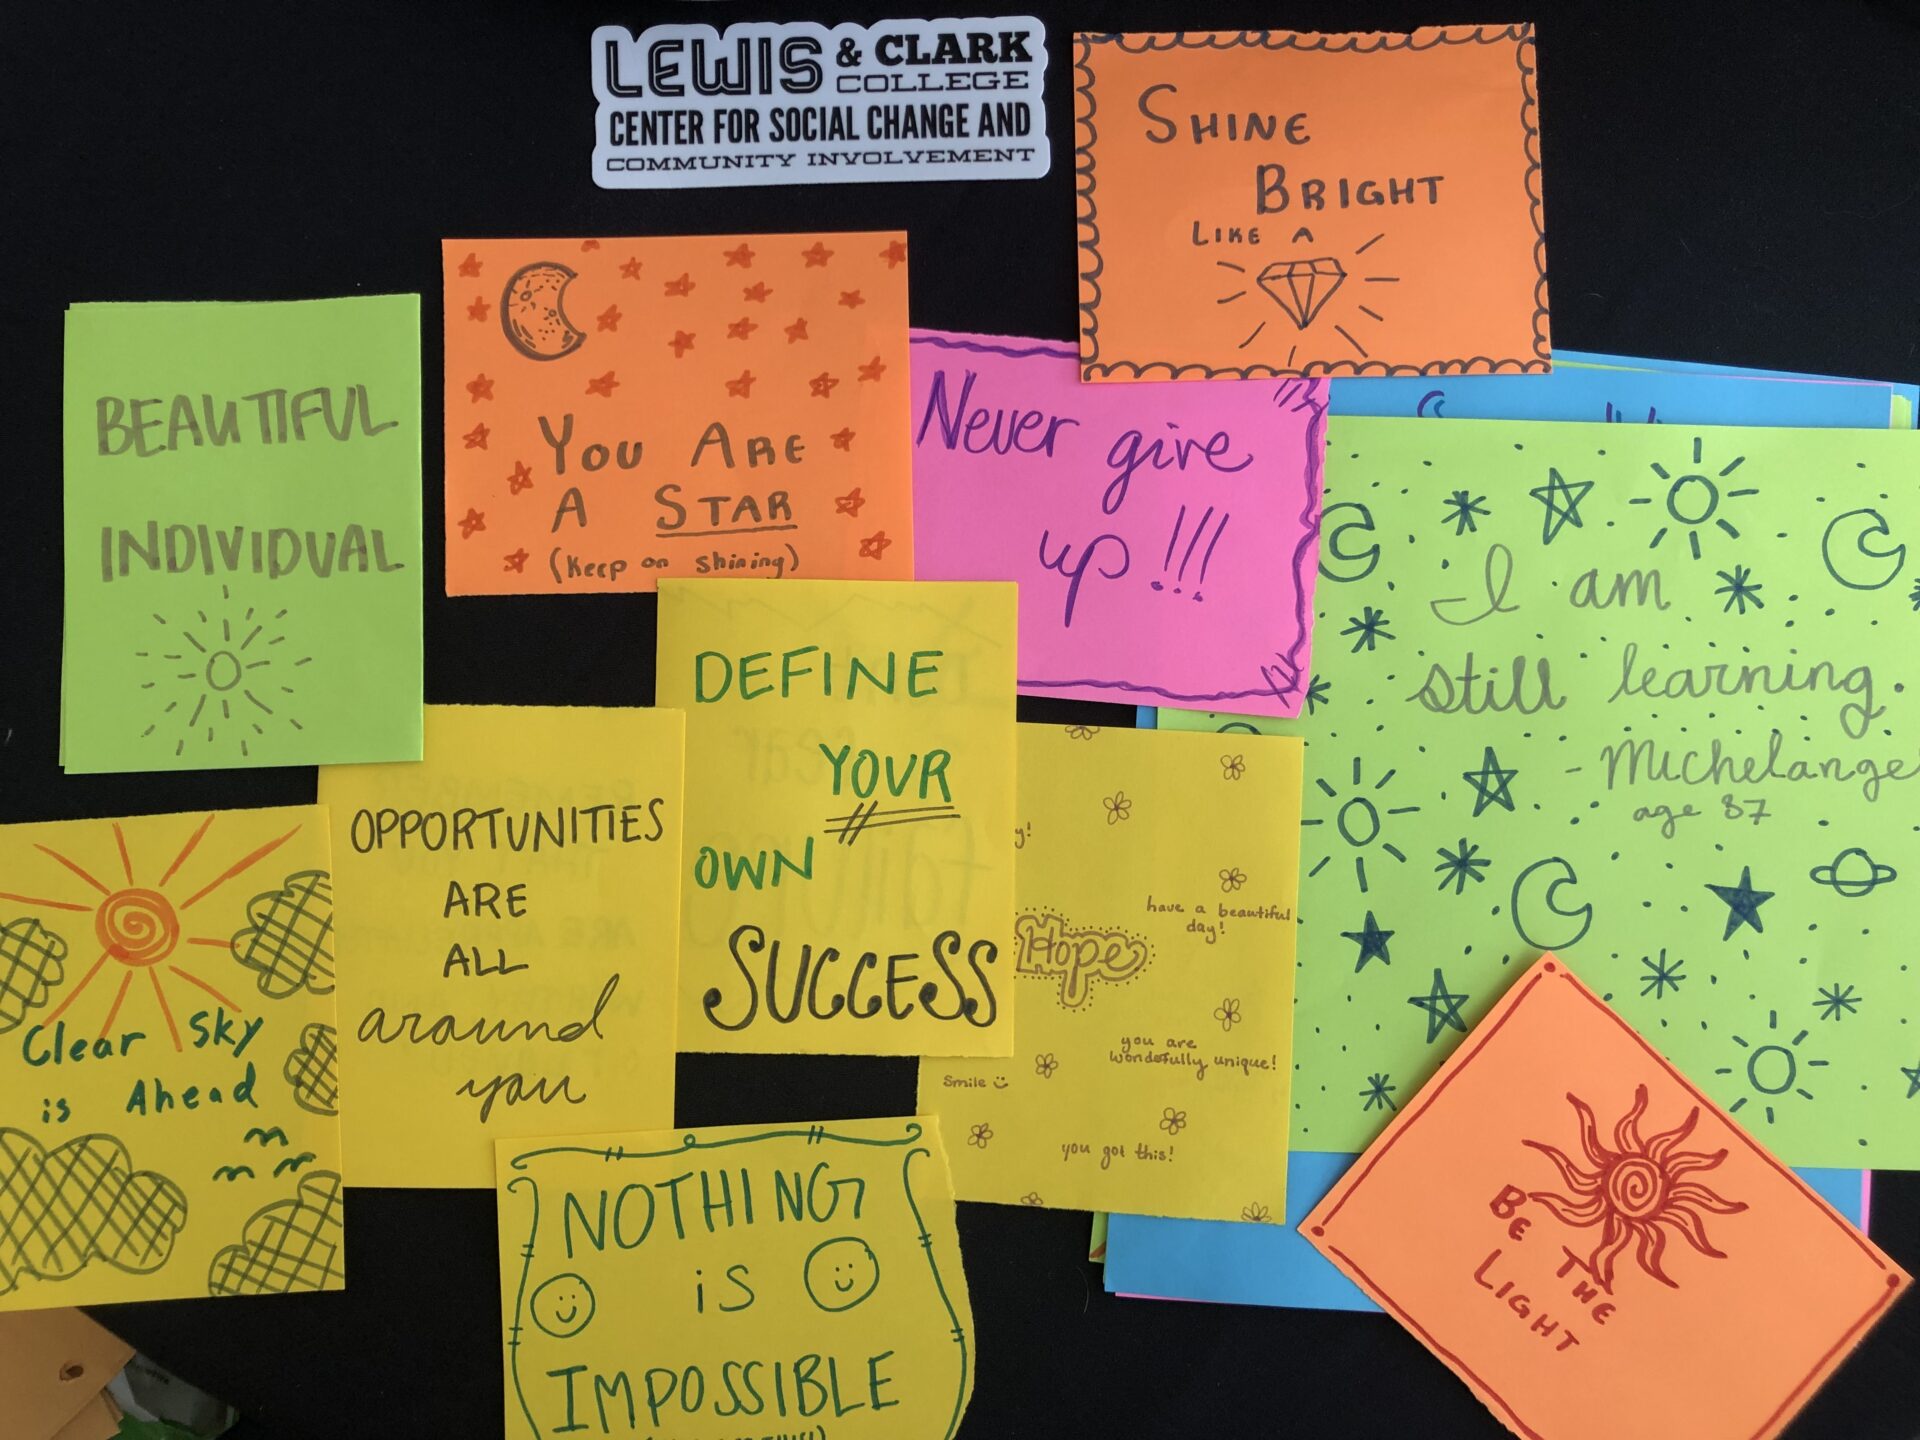 LEWIS & CLARK
COLLEGE
CENTER FOR SOCIAL CHANGE AND
COMMUNITY INVOLVEMENT
SHINE
BRIGHT
LIKE A
BEAUTIFUL
INDIVIDUAL
YOU ARE
A STAR
(Keep on shining)
Never give
up!!!
I am
still learning.
- Michelangelo
age 87
DEFINE
YOUR
OWN
SUCCESS
OPPORTUNITIES
ARE
ALL
around
you
Clear Sky
is Ahead
Hope
have a beautiful
day!
you are
wonderfully unique!
Smile
you got this!
NOTHING
is
IMPOSSIBLE
BE THE
LIGHT